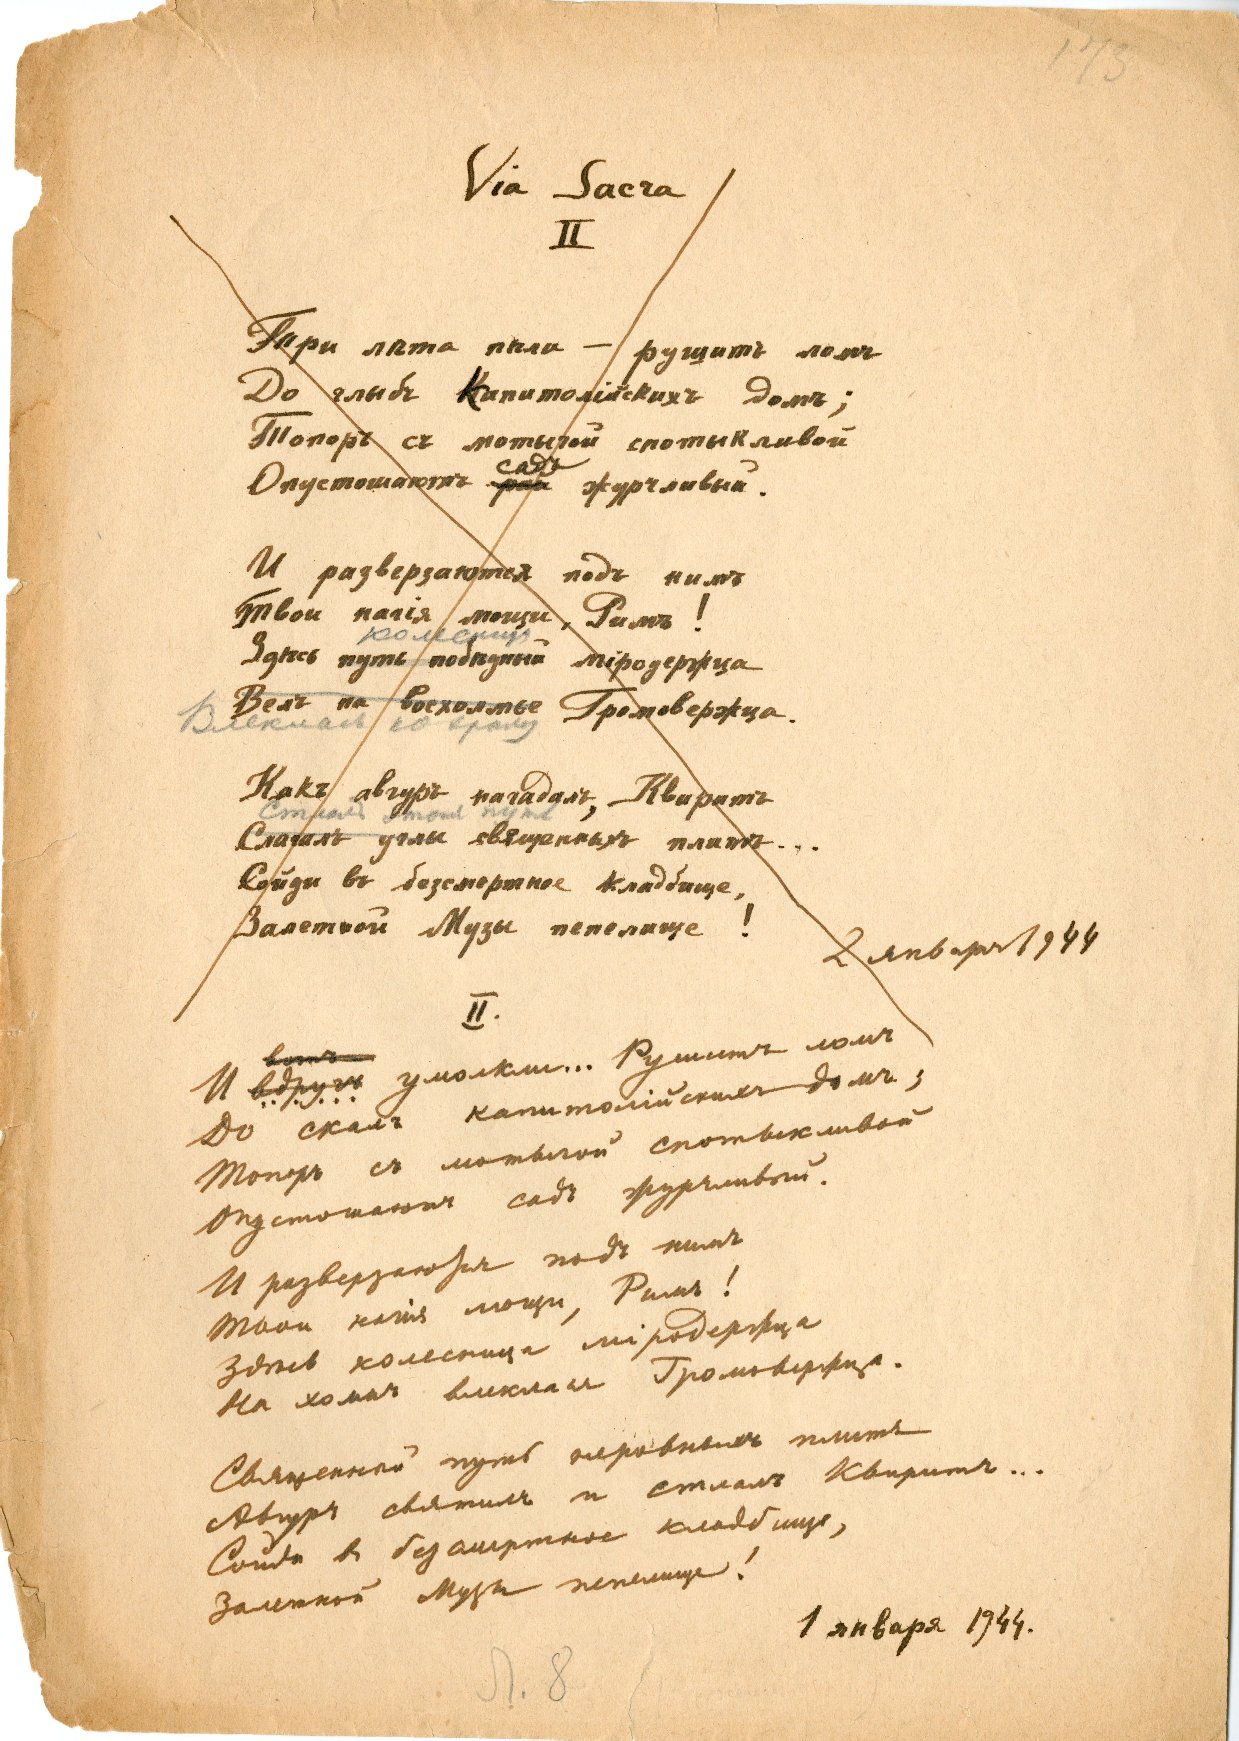 173
Via Sacra
II
Три лѣта пѣли — рушитъ ломъ
До глыбъ Капитолійскихъ домъ;
Топоръ съ мотыгой спотыкливой
садъ
Опустошаютъ рай журчливый.
И разверзаются подъ нимъ
Твои нагія мощи, Римъ!
колесница
Здѣсь путь побѣдный міродержца
Велъ на восхолмье Громовержца.
Влеклась ко храму
Какъ авгуръ нагадалъ, Квиритъ
Стлалъ путь
Слагалъ углы священныхъ плитъ...
Сойди въ безсмертное кладбище,
Залетной Музы пепелище!
2 января 1944
II.
вотъ
И вдругъ умолкли... Рушитъ ломъ
До скалъ капитолійскихъ домъ;
Топоръ съ мотыгой спотыкливой
Опустошаютъ садъ журчливый.
И разверзаются подъ нимъ
Твои нагія мощи, Римъ!
Здѣсь колесница міродержца
На холмъ влеклася Громовержца.
Священный путь неровныхъ плитъ
Авгуръ святилъ и стлалъ Квиритъ...
Сойди въ безсмертное кладбище,
Залетной Музы пепелище!
1 января 1944.
Л. 8